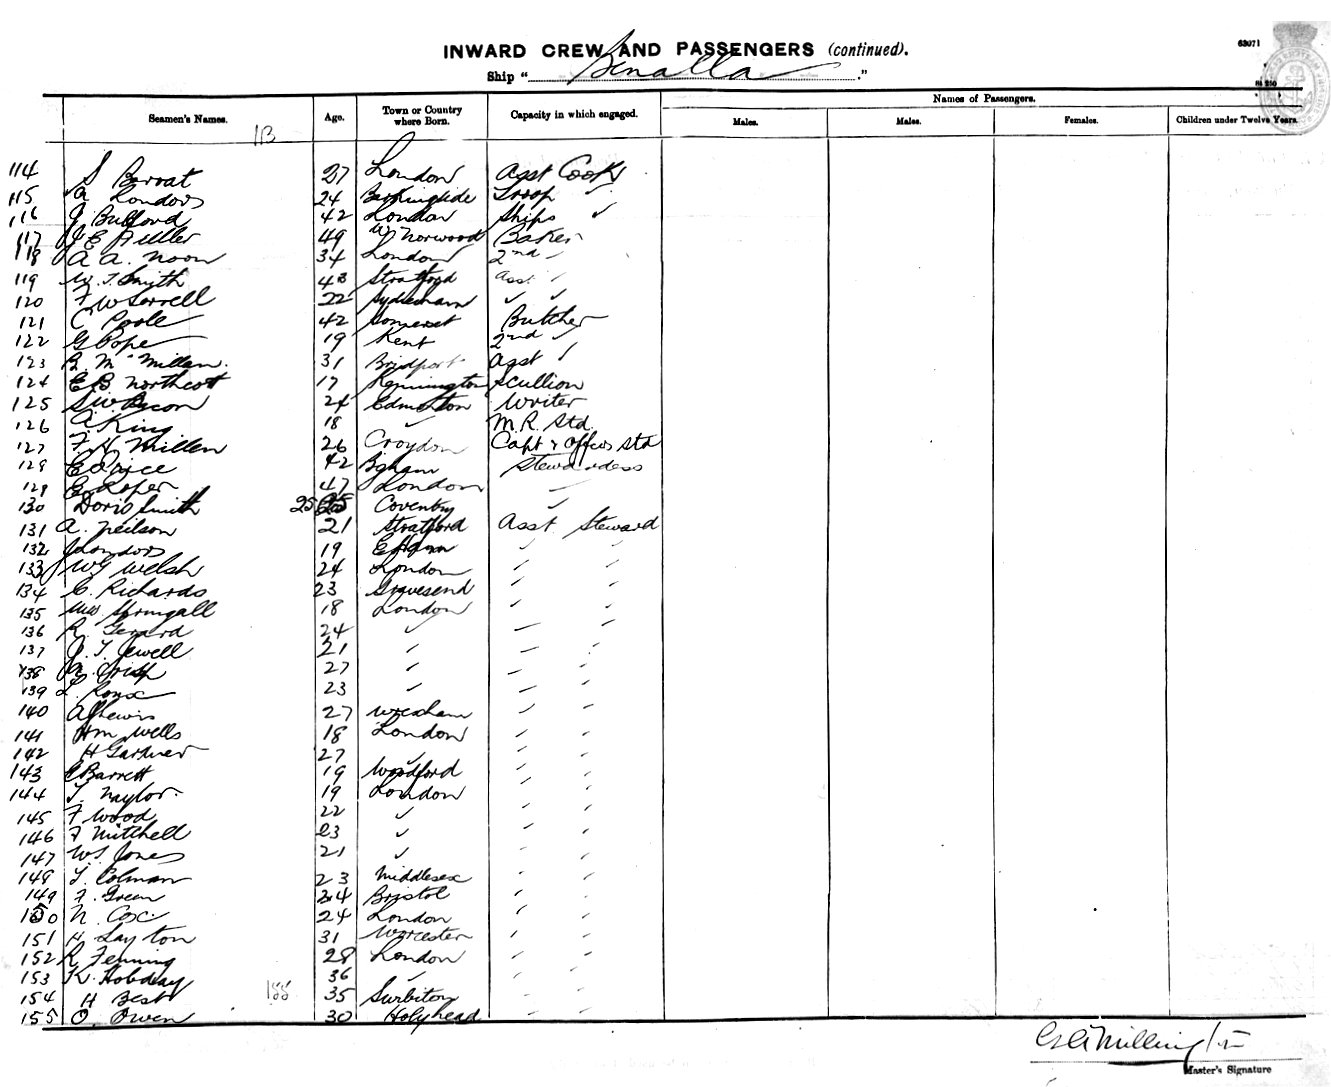 INWARD CREW AND PASSENGERS (continued).
63071
Ship " Benalla ."
Seamen's Names. Age. Town or Country where Born. Capacity in which engaged. Names of Passengers.
Males. Males. Females. Children under Twelve Years.
114 S Barrat 27 London Asst Cook
115 Londors 24 Troop "
116 Bulford 42 London Ships "
117 J E Fuller 49 W Norwood Baker
118 A A. Noon 34 London 2nd "
119 W. J. Smith 43 Stratford Asst "
120 F W Sorrell 22 Sydenham " "
121 C Poole 42 Somerset Butcher
122 G Pope 19 Kent 2nd "
123 R. McMillan. 31 Bridport Asst "
124 E B Northcott 17 Kennington Scullion
125 S W Bycon 24 Edmonton Writer
126 A. King 18 " M. R. Std.
127 F. H. Millen 26 Croydon Capt & Officers Std
128 E Price 42 Stewardess
129 E. Roper 47 London "
130 Doris Smith 25 25 Coventry "
131 A. Neilson 21 Stratford Asst Steward
132 Londors 19 " "
133 W G Welsh 24 London " "
134 C. Richards 23 Gravesend " "
135 18 London " "
136 R. Gerard 24 " " "
137 J. T. Jewell 21 " " "
138 Crisp 27 " " "
139 L. Roux 23 " " "
140 A Lewis 27 Wrexham " "
141 Hm Wells 18 London " "
142 H Gardner 27 " " "
143 E Barrett 19 Woodford " "
144 T. Naylor. 19 London " "
145 F Wood 22 " " "
146 F Mitchell 23 " " "
147 W. S. Jones 21 " " "
148 T. Colman 23 Middlesex " "
149 F. Green 24 Bristol " "
150 N. Cox. 24 London " "
151 H Layton 31 Worcester " "
152 R Fenning 28 London " "
153 K. Hobday 36 " " "
154 H Best 35 Surbiton " "
155 O. Owen 30 Holyhead " "
G A Millington
Master's Signature